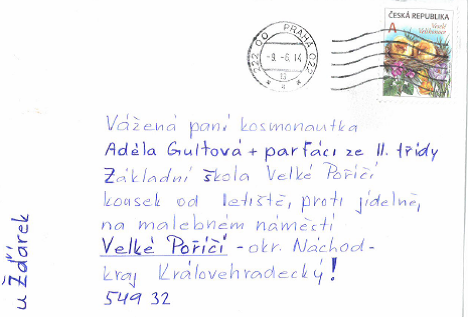 222 00 PRAHA 022
-9.-6.14
13
ČESKÁ REPUBLIKA
A
Veselé
Velikonoce
Vážená paní kosmonautka
Adéla Gultová + parťáci ze II. třídy
Základní škola Velké Poříčí
kousek od letiště, proti jídelně,
na malebném náměstí
Velké Poříčí - okr. Náchod -
kraj Královehradecký!
549 32
u Žďárek